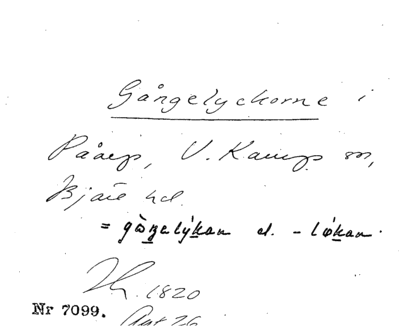 Gångelyckorne i
Påarp, V. Karup sn,
Bjäre hd.
= gåŋelýkan el. -løkan.
1820
Nr 7099.